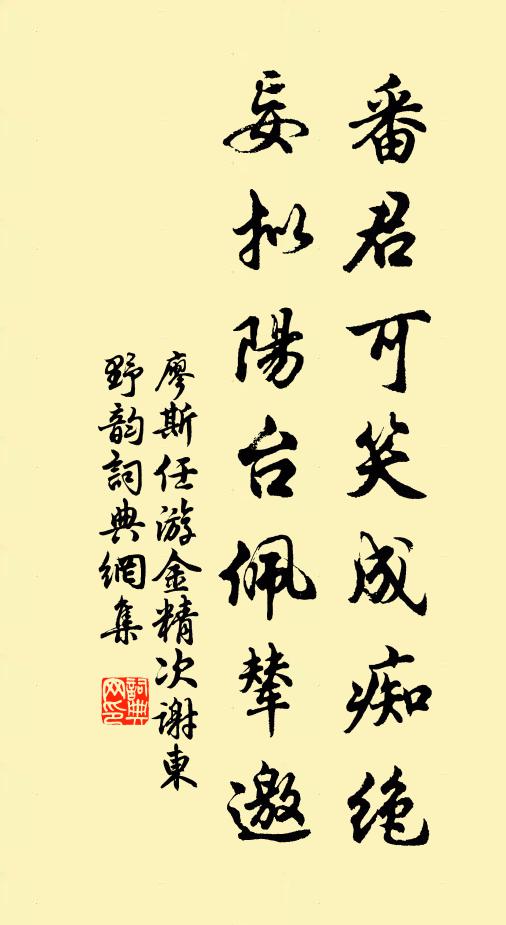 番君可笑成痴绝
妄拟陽台佩辇邀
廖斯任游金精次谢東
野韵詞典網集
詞典
网印